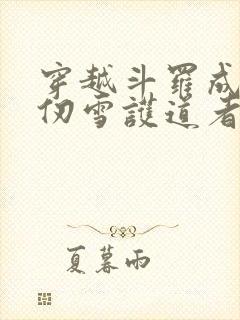 穿越斗羅成
仞雪護道者
夏暮雨